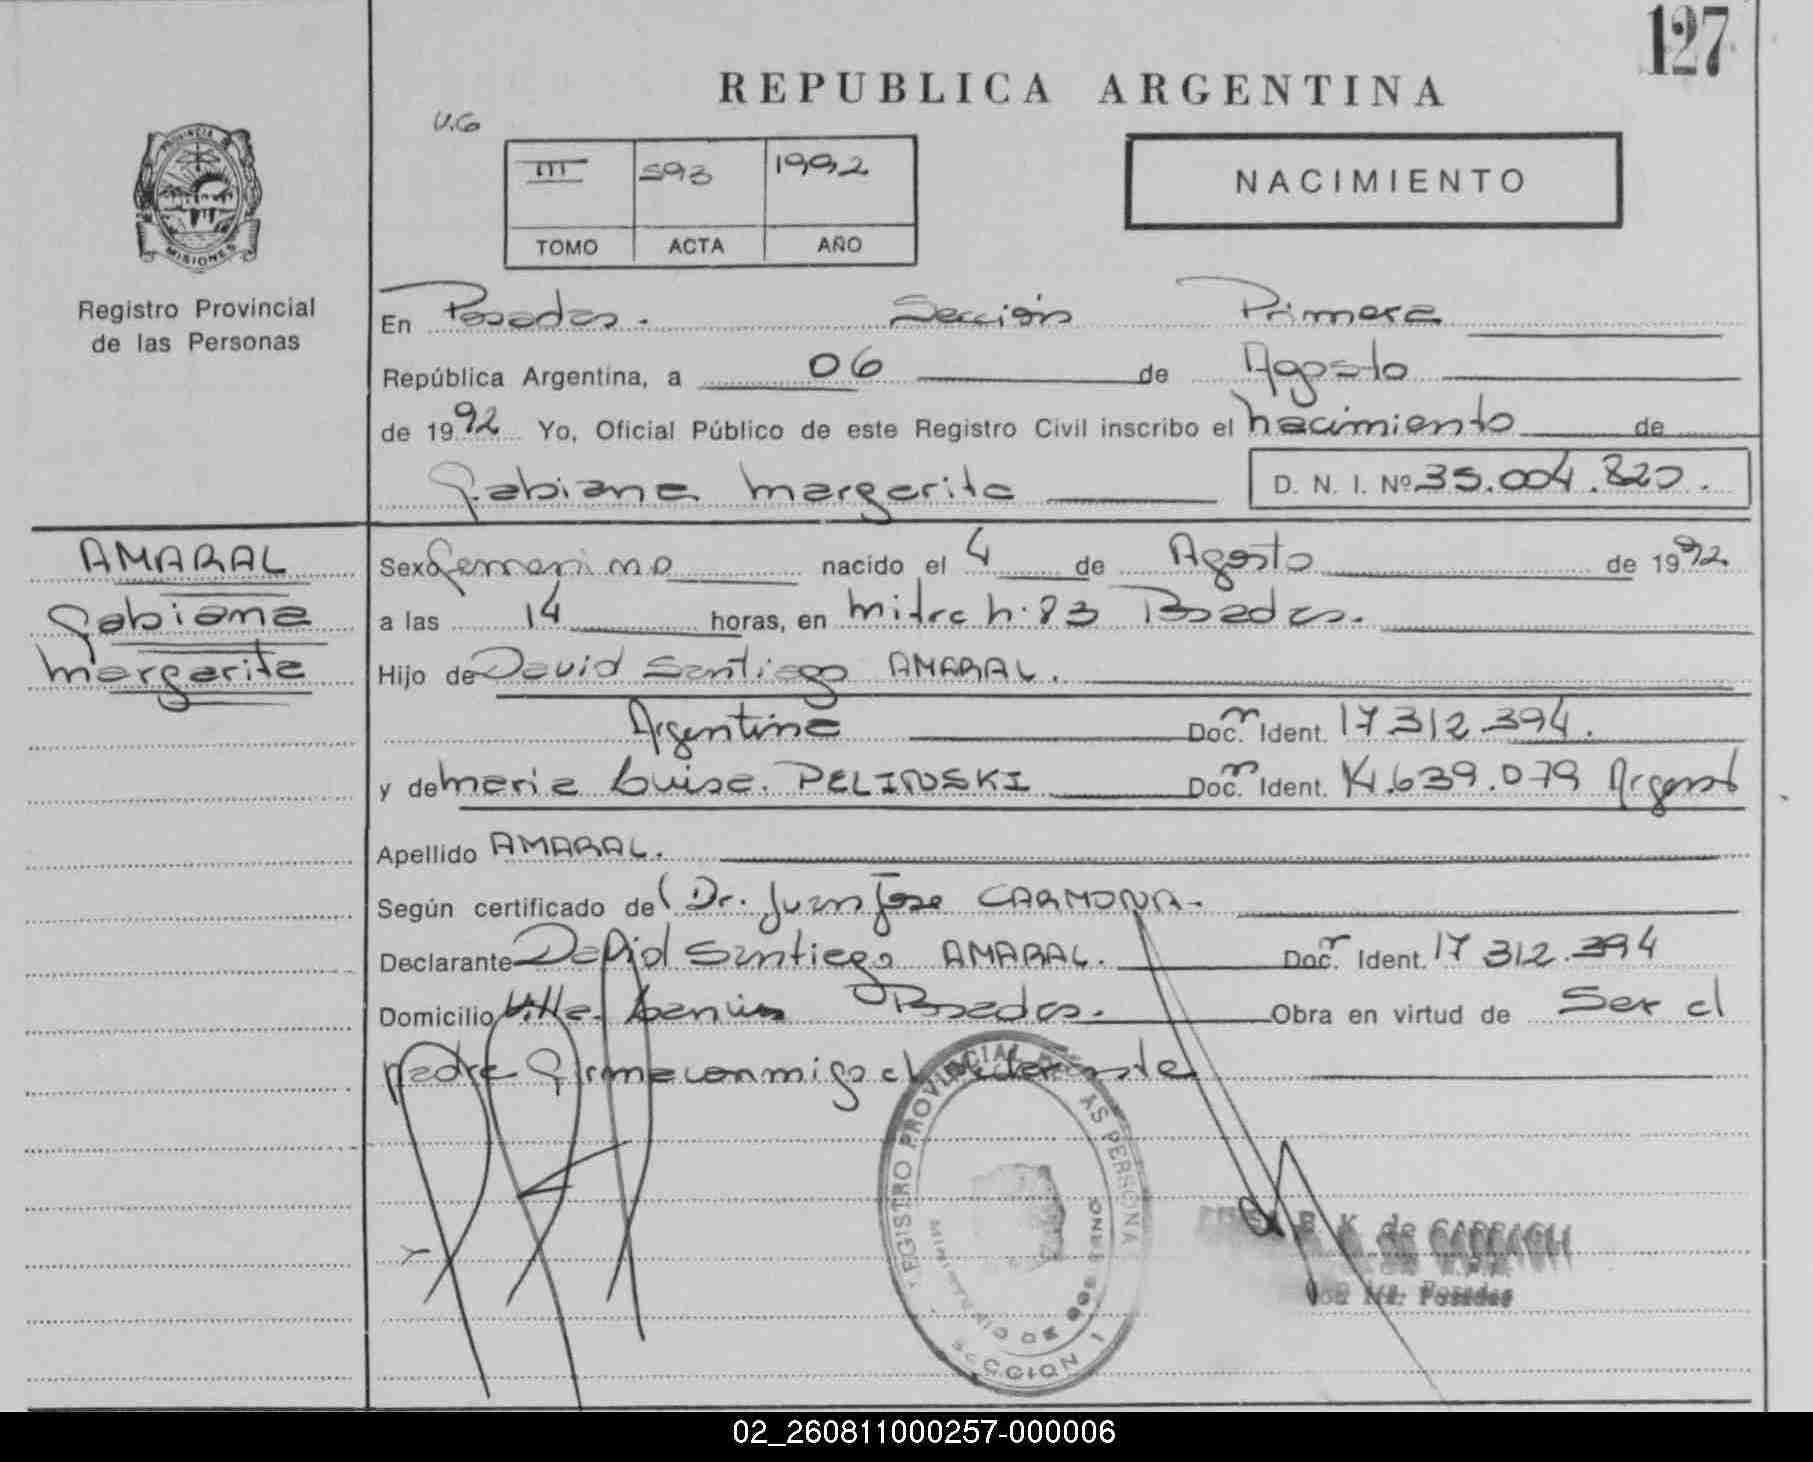 127
REPUBLICA ARGENTINA
V.G
III 593 1992
TOMO ACTA AÑO
NACIMIENTO
PROVINCIA DE MISIONES
Registro Provincial
de las Personas
En Posadas. Sección Primera
República Argentina, a 06 de Agosto
de 1992 Yo, Oficial Público de este Registro Civil inscribo el nacimiento de
Fabiana Margarita D. N. I. Nº 35.004.820.
AMARAL
Fabiana
Margarita
Sexo Femenino nacido el 4 de Agosto de 1992
a las 14 horas, en Mitre n: 83 Posadas.
Hijo de David Santiago AMARAL.
Argentina Doc. Ident. 17 312.394.
y de Maria Luisa. PELINSKI Doc. Ident. 14.639.079 Argent
Apellido AMARAL.
Según certificado del Dr. Juan Jose CARMONA.
Declarante David Santiago AMARAL. Doc. Ident. 17 312.394
Domicilio Villa Posadas. Obra en virtud de Ser el
padre firma conmigo el
REGISTRO PROVINCIAL DE LAS PERSONAS
MINISTERIO DE GOBIERNO
SECCION 1
B. K. de
1ra. Posadas
02_260811000257-000006